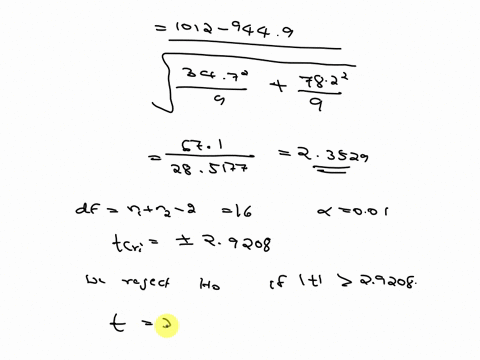 = 1012 - 944.9
√ 34.7²/9 + 78.2²/9
= 67.1/28.5177 = 2.3529
df = n₁+n₂-2 = 16 α = 0.01
tcri = ± 2.9208
we reject Ho if |t| > 2.9208.
t = 2